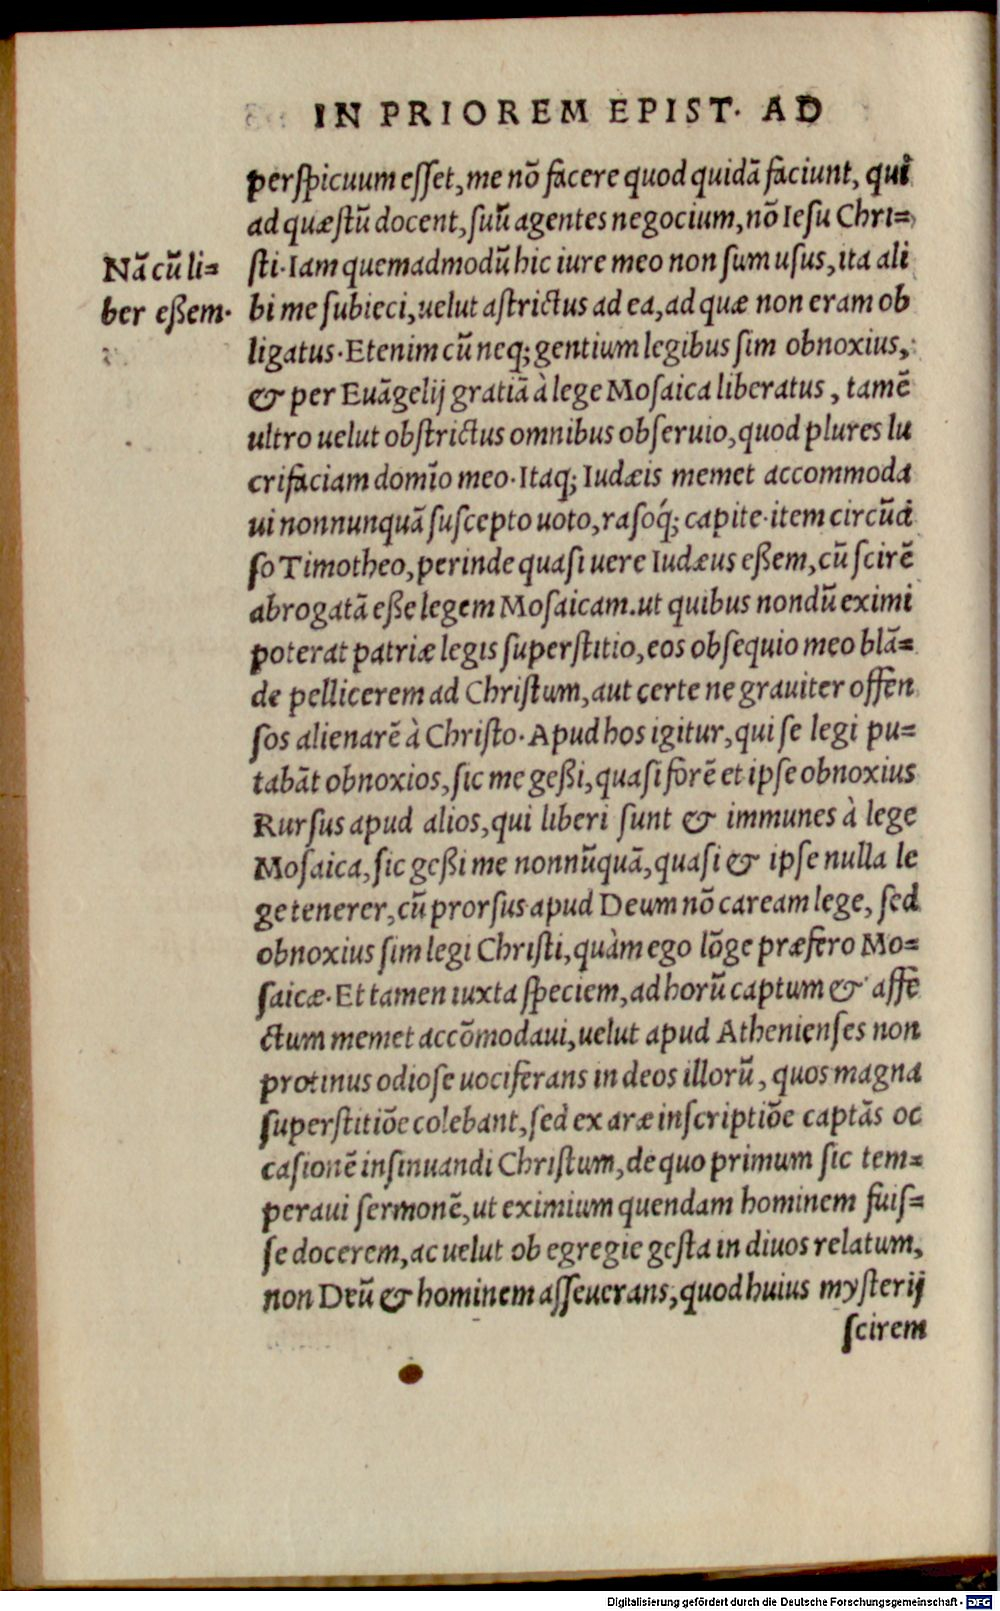 IN PRIOREM EPIST. AD
perspicuum esset, me nõ facere quod quidã faciunt, qui
ad quæstũ docent, suũ agentes negocium, nõ Iesu Chri=
Nã cũ li=
ber eßem.
sti. Iam quemadmodũ hic iure meo non sum usus, ita ali
bi me subieci, uelut astrictus ad ea, ad quæ non eram ob
ligatus. Etenim cũ neq; gentium legibus sim obnoxius,
& per Euãgelij gratiã à lege Mosaica liberatus, tamẽ
ultro uelut obstrictus omnibus obseruio, quod plures lu
crifaciam domĩo meo. Itaq; Iudæis memet accommoda
ui nonnunquã suscepto uoto, rasoq́; capite. item circũci
so Timotheo, perinde quasi uere Iudæus eßem, cũ scirẽ
abrogatã eße legem Mosaicam. ut quibus nondũ eximi
poterat patriæ legis superstitio, eos obsequio meo blã=
de pellicerem ad Christum, aut certe ne grauiter offen
sos alienarẽ à Christo. Apud hos igitur, qui se legi pu=
tabãt obnoxios, sic me geßi, quasi forẽ et ipse obnoxius
Rursus apud alios, qui liberi sunt & immunes à lege
Mosaica, sic geßi me nonnũquã, quasi & ipse nulla le
ge tenerer, cũ prorsus apud Deum nõ caream lege, sed
obnoxius sim legi Christi, quàm ego lõge præfero Mo=
saicæ. Et tamen iuxta speciem, ad horũ captum & affe
ctum memet accõmodaui, uelut apud Athenienses non
protinus odiose uociferans in deos illorũ, quos magna
superstitiõe colebant, sed ex aræ inscriptiõe captãs oc
casionẽ insinuandi Christum, de quo primum sic tem=
peraui sermonẽ, ut eximium quendam hominem fuis=
se docerem, ac uelut ob egregie gesta in diuos relatum,
non Deũ & hominem asseuerans, quod huius mysterij
scirem
Digitalisierung gefördert durch die Deutsche Forschungsgemeinschaft - DFG